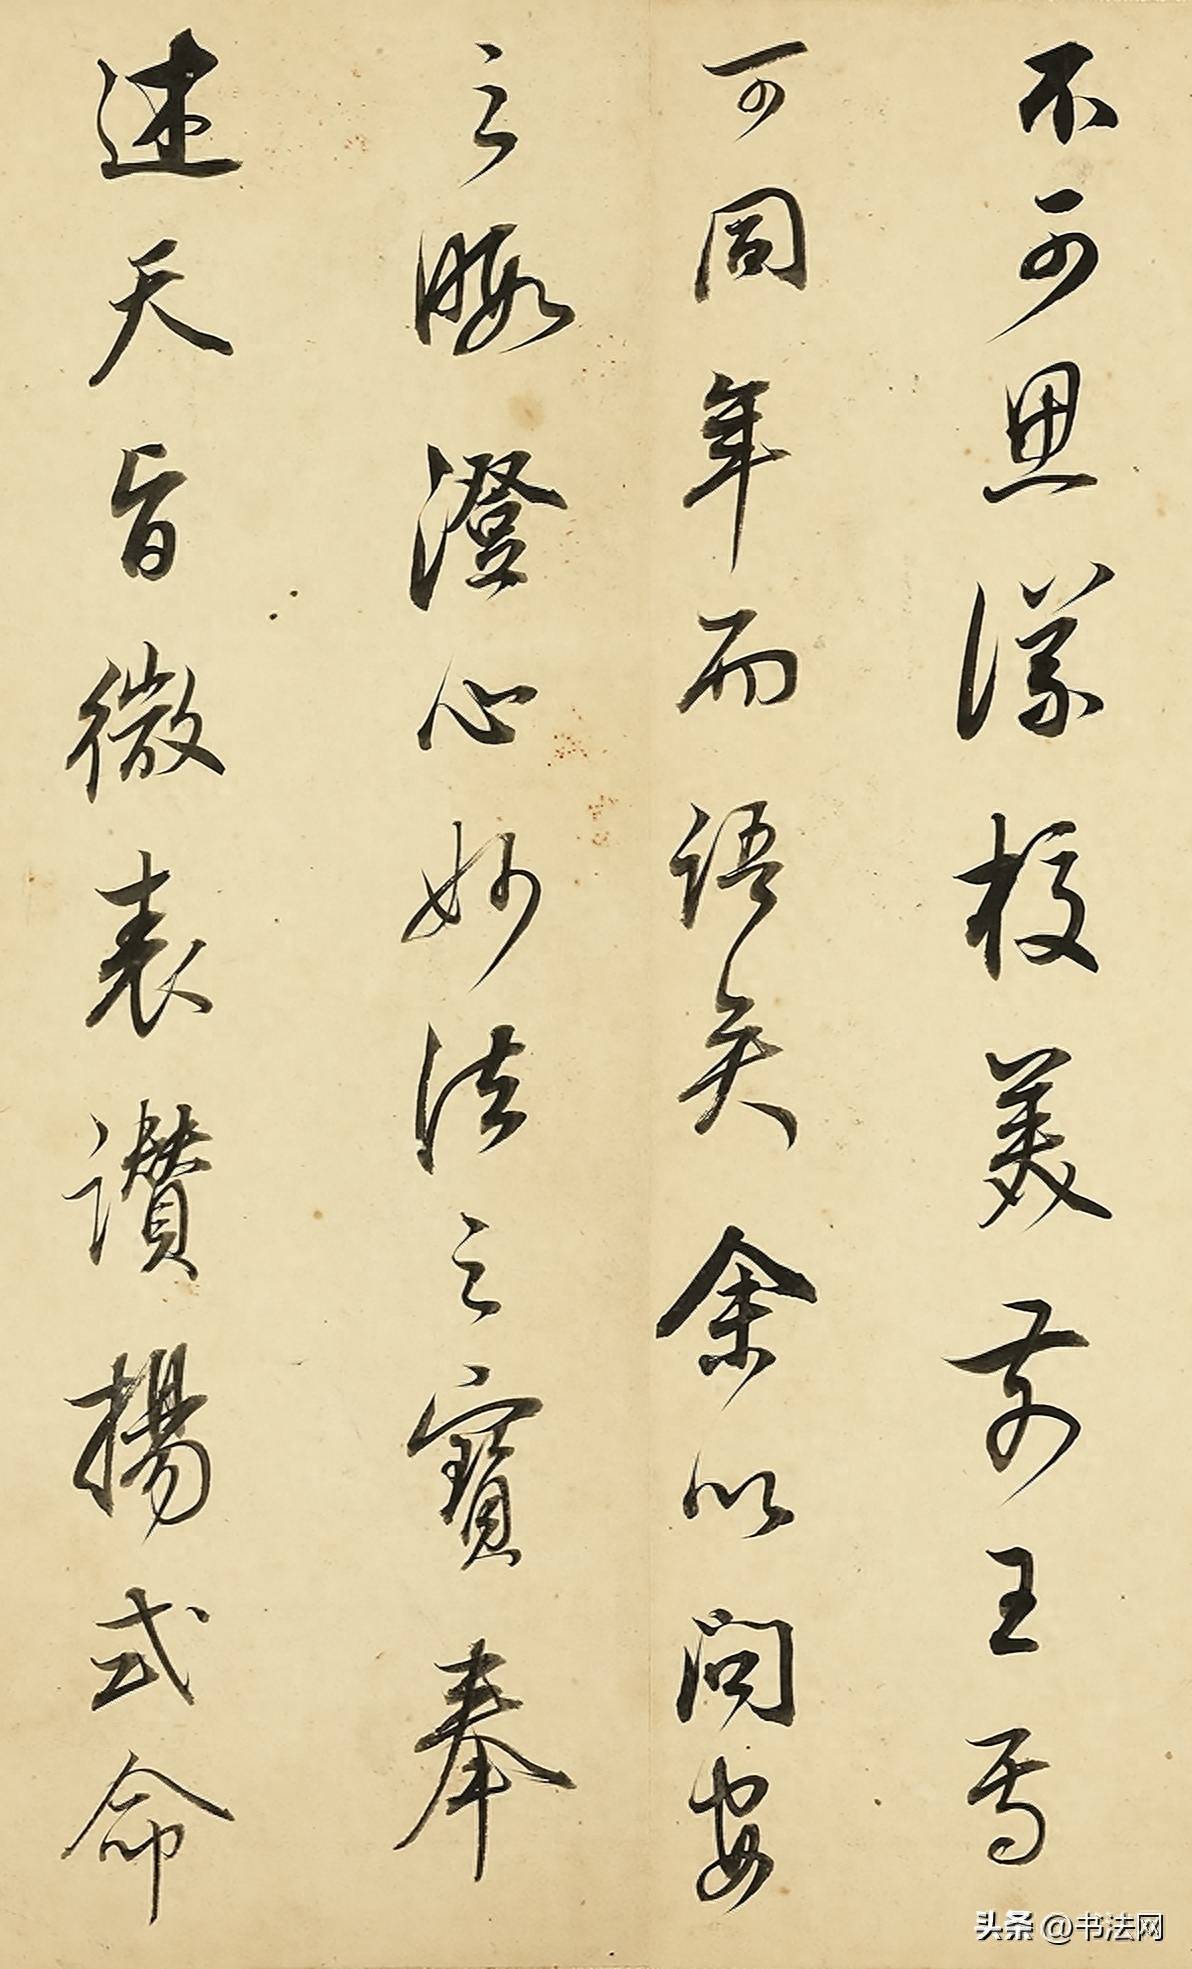 不可思議校美前王焉
可同年而語矣余以問安
之暇澄心妙法之寶奉
述天旨微表讚揚式命
头条 @书法网